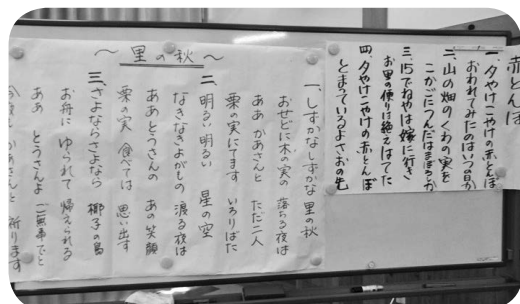 赤とんぼ
一、夕やけこやけの赤とんぼ
おわれてみたのはいつの日か
二、山の畑のくわの実を
こかごにつんだはまぼろしか
三、15でねやは嫁に行き
お里の便りに絶えはてた
四、夕やけこやけの赤とんぼ
とまっているよさおの先
〜里の秋〜
一、しずかなしずかな 里の秋
おせどに木の実の 落ちる夜は
ああ かあさんと ただ二人
栗の実にてます いろりばた
二、明るい明るい 星の空
なきなきよがもの 渡る夜は
ああとうさんの あの笑顔
栗の実 食べては 思い出す
三、さよならさよなら 椰子の島
お舟に ゆられて 帰えられる
ああ とうさんよ ご無事でと
かあさんと 祈ります